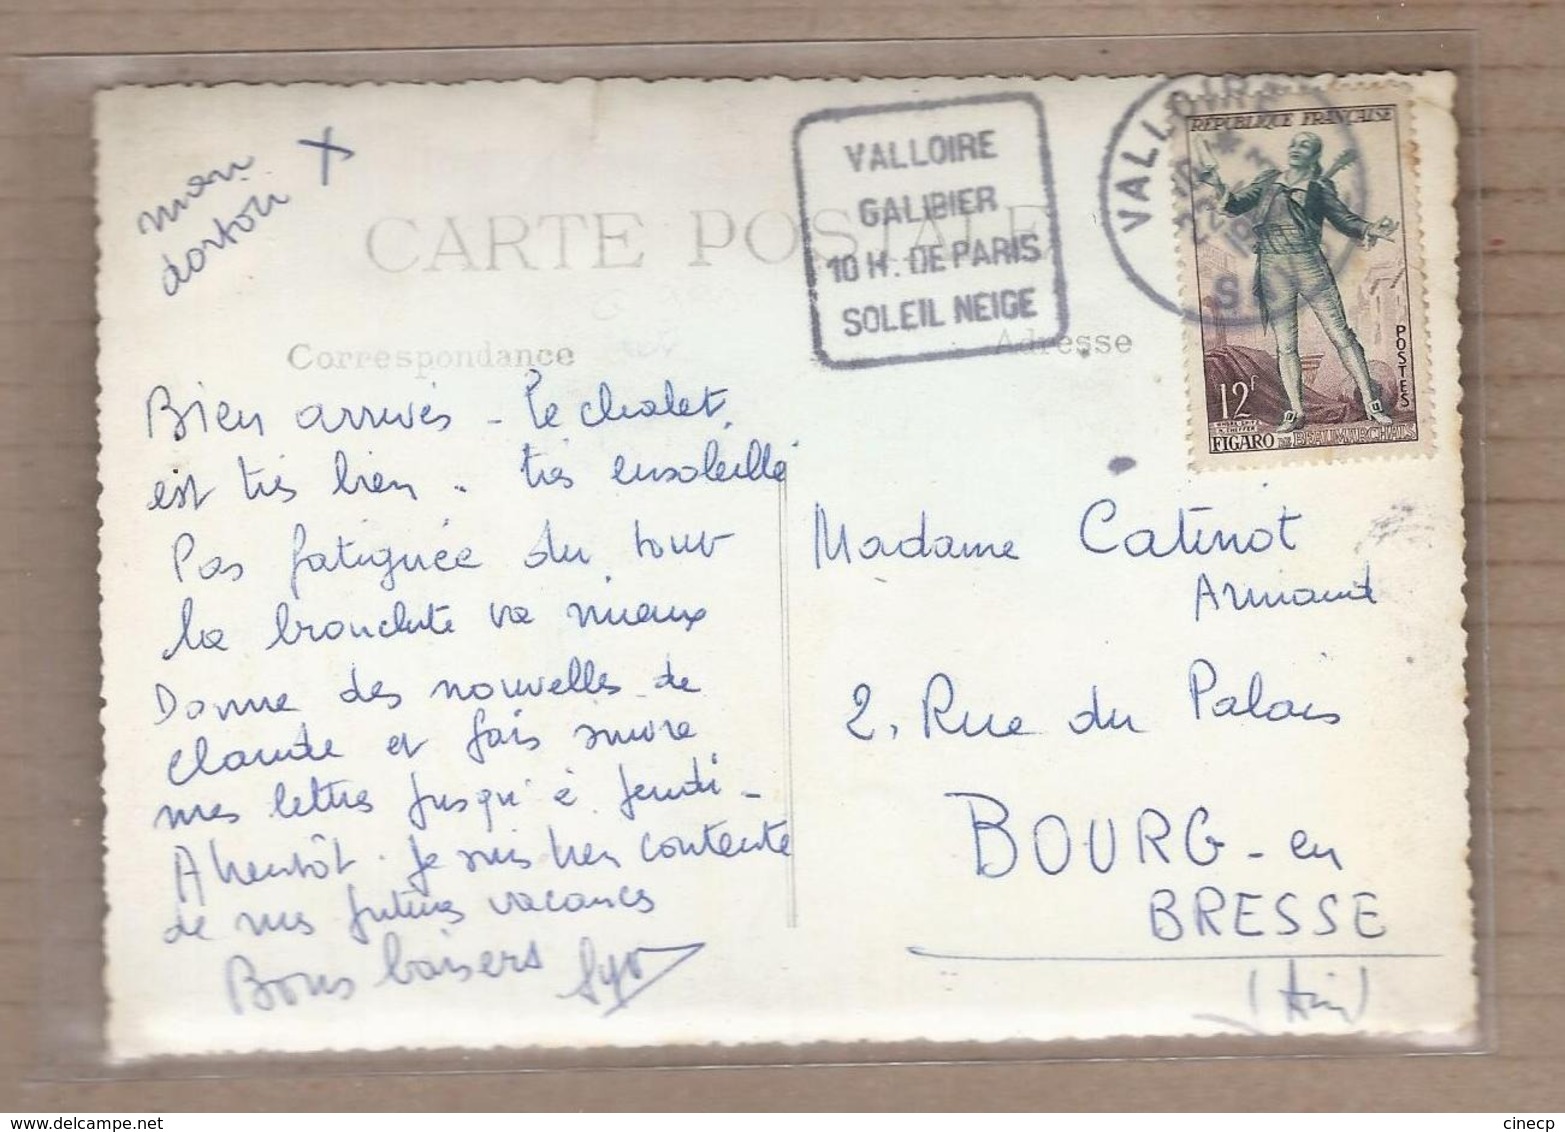 mon
dortoir X
CARTE POSTALE
VALLOIRE
GALIBIER
10 H. DE PARIS
SOLEIL NEIGE
VALLOIRE
REPUBLIQUE FRANÇAISE
POSTES
12f
FIGARO DE BEAUMARCHAIS
Correspondance
Adresse
Bien arrivés - le chalet
est très bien. très ensoleillé
Pas fatiguée du tout
la bronchite va mieux
Donne des nouvelles de
Claude et fais suivre
mes lettres jusqu'à jeudi -
A bientôt. je suis bien contente
de mes futures vacances
Bons baisers
Madame Catinot
Armand
2, Rue du Palais
BOURG - en
BRESSE
(Ain)
cinecp